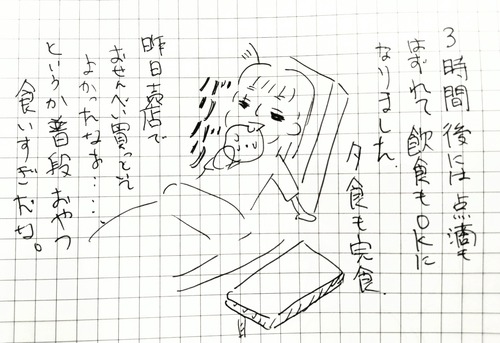 3時間後には点滴も
はずれて飲食もOKに
なりました。
夕食も完食。
バリバリ
昨日売店で
おせんべい買ってて
よかったなぁ・・・、
というか普段おやつ
食いすぎだな。